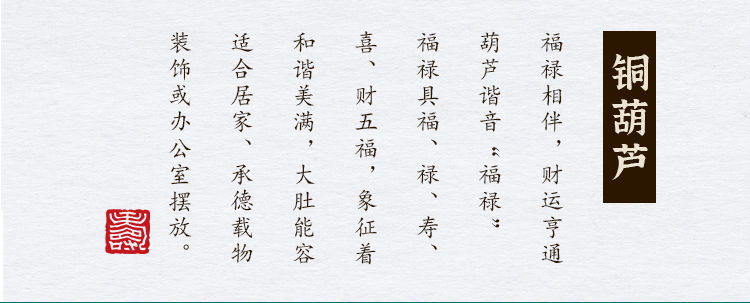 铜葫芦
福禄相伴，财运亨通
葫芦谐音“福禄”
福禄具福、禄、寿、
喜、财五福，象征着
和谐美满，大肚能容
适合居家、承德载物
装饰或办公室摆放。